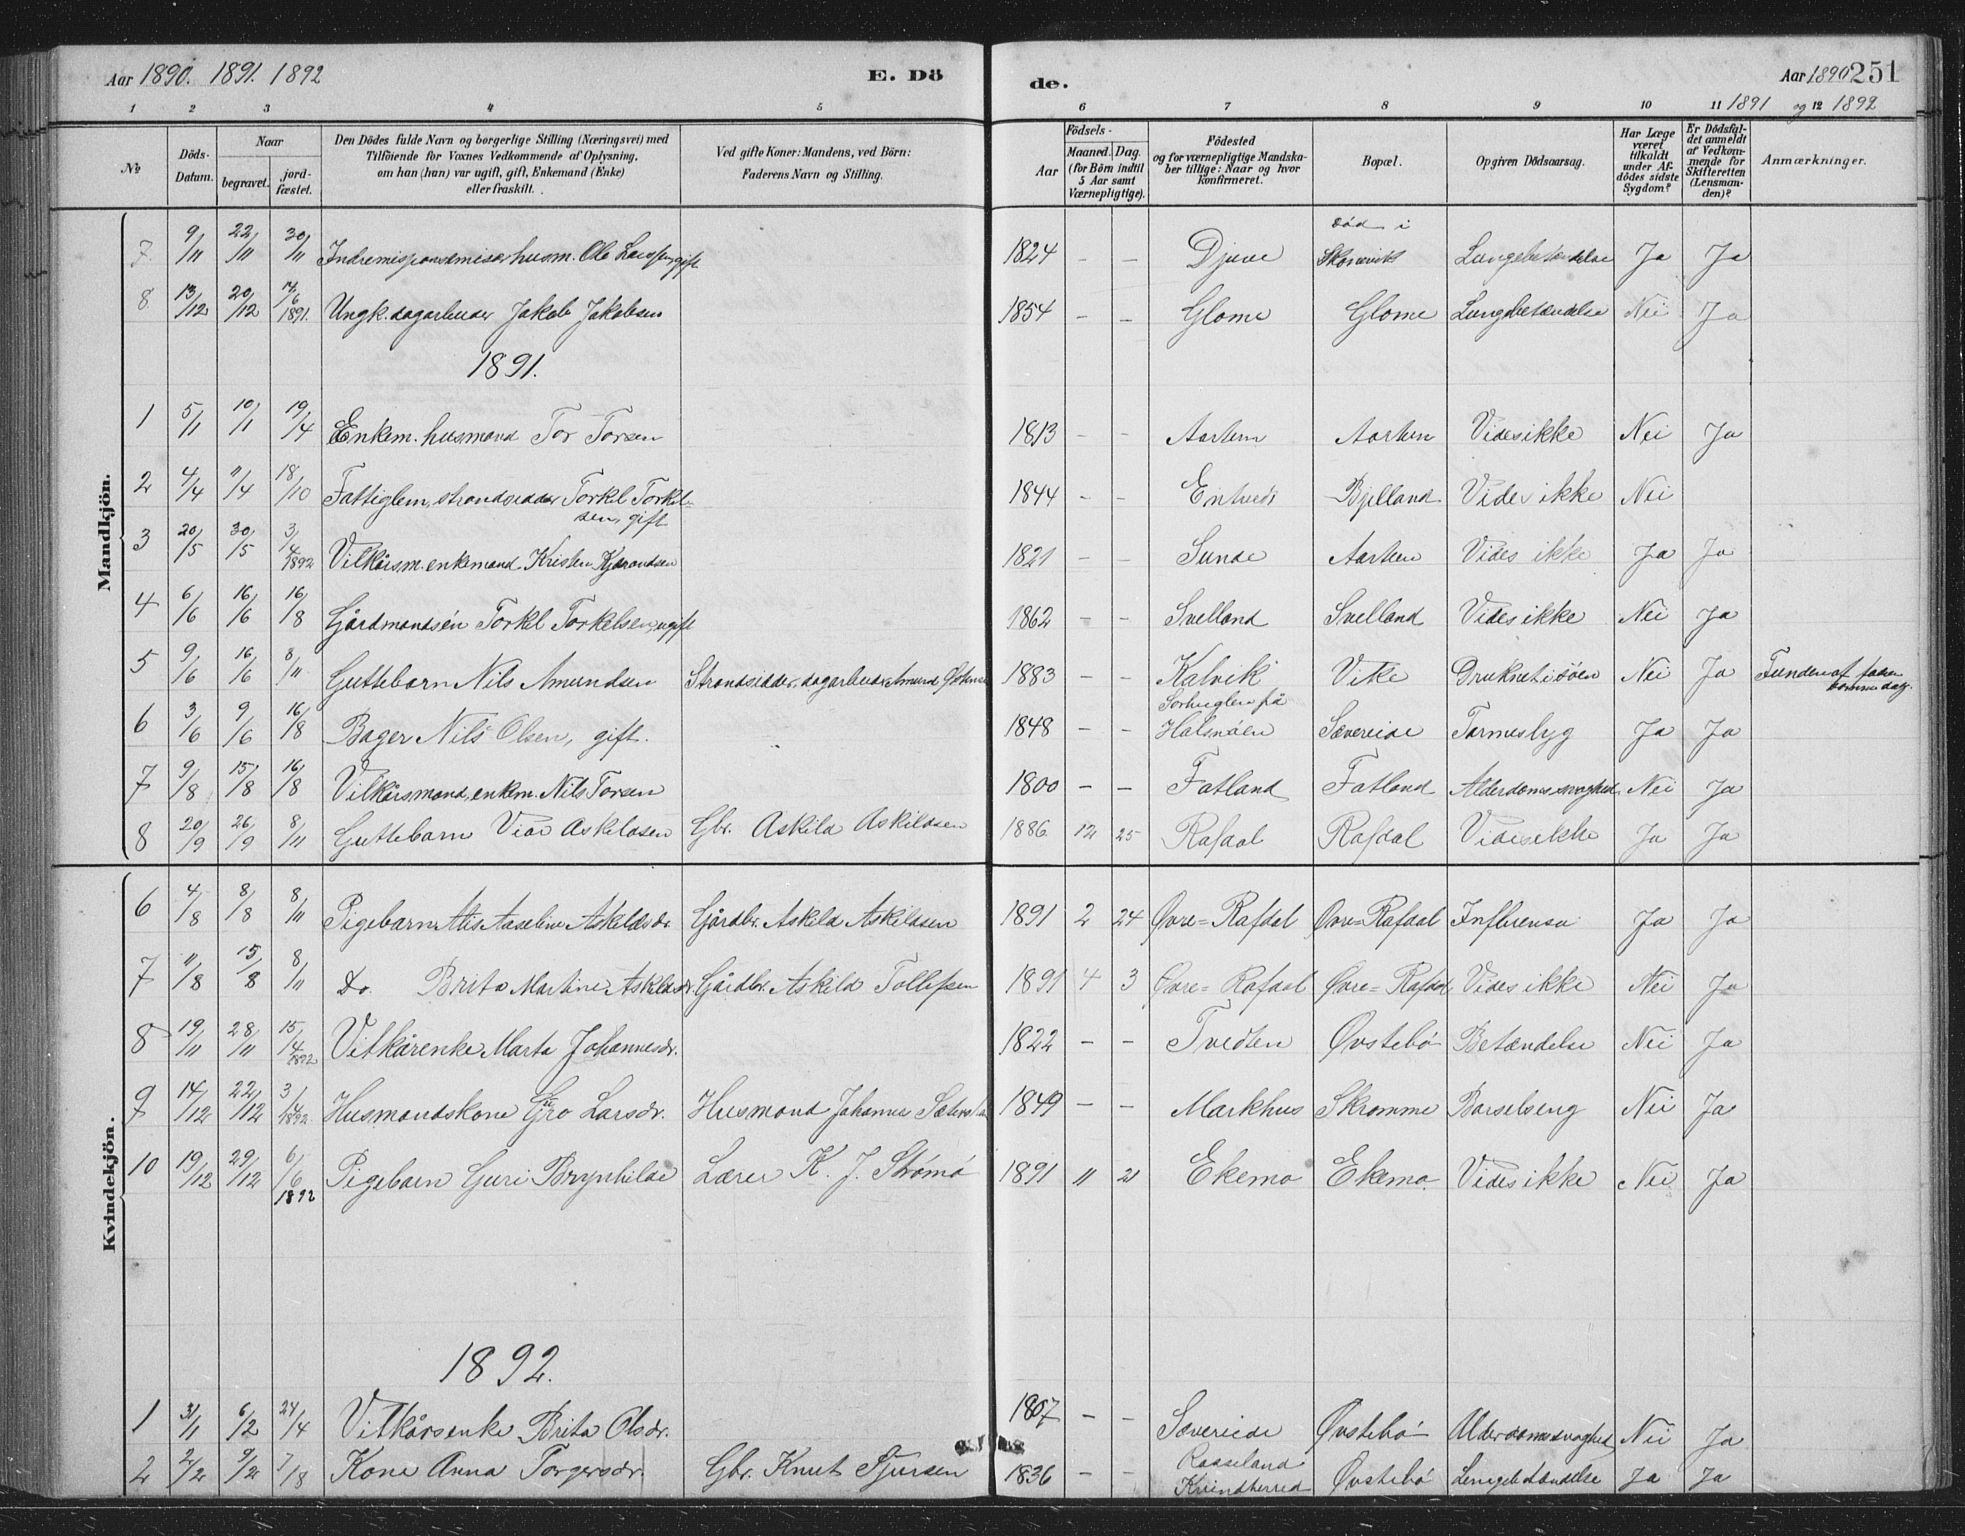 Aar 1890. 1891. 1892
E. Dö
de.
Aar 1890 251
1891 og 12 1892
1 2 3 4 5 6 7 8 9 10 11
No
Döds-Datum.
Naar
begravet.
jord-fæstet.
Den Dödes fulde Navn og borgerlige Stilling (Næringsvei) med
Tilföiende for Voxnes Vedkommende af Oplysning,
om han (hun) var ugift, gift, Enkemand (Enke)
eller fraskilt.
Ved gifte Koner: Mandens, ved Börn:
Faderens Navn og Stilling.
Födsels-
Aar
Maaned. Dag.
(for Börn indtil
5 Aar samt
Værnepligtige).
Födested
og for værnepligtige Mandska-
ber tillige: Naar og hvor
konfirmeret.
Bopæl.
Opgiven Dödsaarsag.
Har Læge
været
tilkaldt
under Af-
dödes sidste
Sygdom?
Er Dödsfal-
det anmeldt
af Vedkom-
mende for
Skifteretten
(Lensman-
den)?
Anmærkninger.
Mandkjön.
7 9/11 22/11 30/11 husm. Ole Larssen gift 1824 - - Djuve Död i Skonevik Lungebetændelse Ja Ja
8 13/12 20/12 14/6 1891. Ungk. dagarbeider Jakob Jakobsen 1854 - - Glome Glome Lungebetændelse Nei Ja
1891.
1 5/1 10/1 19/4 Enkem. husmand Tor Torsen 1813 - - Aarten Aarten Vides ikke Nei Ja
2 4/4 11/4 18/10 Fattiglem, strandsidder Torkel Torkel-
sen, gift 1844 - - Entveit Bjelland Vides ikke Nei
3 20/5 30/5 3/4 1892 Vilkårsm. enkemand Kristen 1821 - - Sunde Aarten Vides ikke Ja Ja
4 6/6 16/6 16/8 Gårdmandsön Torkel Torkelsen, ugift 1862 - - Svelland Svelland Vides ikke Nei Ja
5 9/6 16/6 8/11 Guttebarn Nils Amundsen Strandsidder, dagarbeider Amund 1883 - - Kalvik Vike Druknet i söen Nei Ja Funden af
6 3/6 9/6 16/8 Bager Nils Olsen, gift. 1848 - - Sorhuglen på
Halsnöen Sævereide Tarmeslyg Ja Ja
7 9/8 15/8 16/8 Vilkårsmand, enkem. Nils Torsen 1800 - - Fatland Fatland Alderdomssvaghed Nei Ja
8 20/9 26/9 8/11 Guttebarn Vier Askildsen Gbr. Askild Askildsen 1886 12 25 Rafdal Rafdal Vides ikke Ja Ja
Kvindekjön.
6 4/8 8/8 8/11 Pigebarn Aaseline Askildsdr. Gårdbr. Askild Askildsen 1891 2 24 Övre=Rafdal Övre=Rafdal Influensa Ja Ja
7 11/8 15/8 8/11 Do. Brita Martine Askildsdr. Gårdbr. Askild Tollefsen 1891 4 3 Övre=Rafdal Övre=Rafdal Vides ikke Nei Ja
8 19/11 28/11 15/4 1892 Vilkårenke Marta Johannesdr. 1822 - - Tvedten Övstebö Betændelse Nei Ja
9 14/12 22/12 3/4 1892. Husmandskone Gro Larsdr. Husmand Johannes 1849 - - Markhus Skromme Barselseng Nei Ja
10 19/12 29/12 6/6 1892 Pigebarn Guri Brynhilde Lærer K. J. Strömö 1891 11 21 Ekemo Ekemo. Vides ikke Nei Ja
1892.
1 31/1 6/2 24/4 Vilkårsenke Brita Olsdr. 1807 - - Sævereide Övstebö Alderdomssvaghed Nei Ja
2 2/2 9/2 7/8 Kone Anna Torgersdr. Gbr. Knut Sjursen 1836 - - Rosseland
Kvindherred Övstebö Lungebetændelse Ja Ja